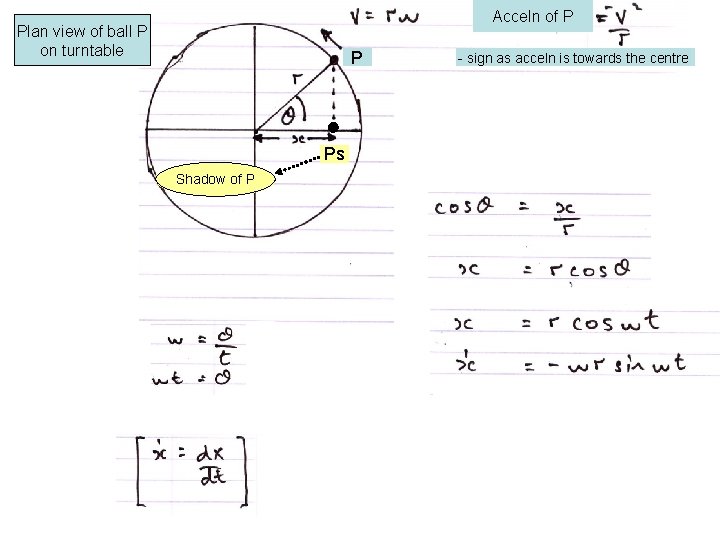 Plan view of ball P
on turntable
v = rw
Acceln of P = -v²/r
P
- sign as acceln is towards the centre
r
θ
x
Ps
Shadow of P
cosθ = x/r
x = r cosθ
x = r cos wt
ẋ = - wr sin wt
w = θ/t
wt = θ
[ẋ = dx/dt]